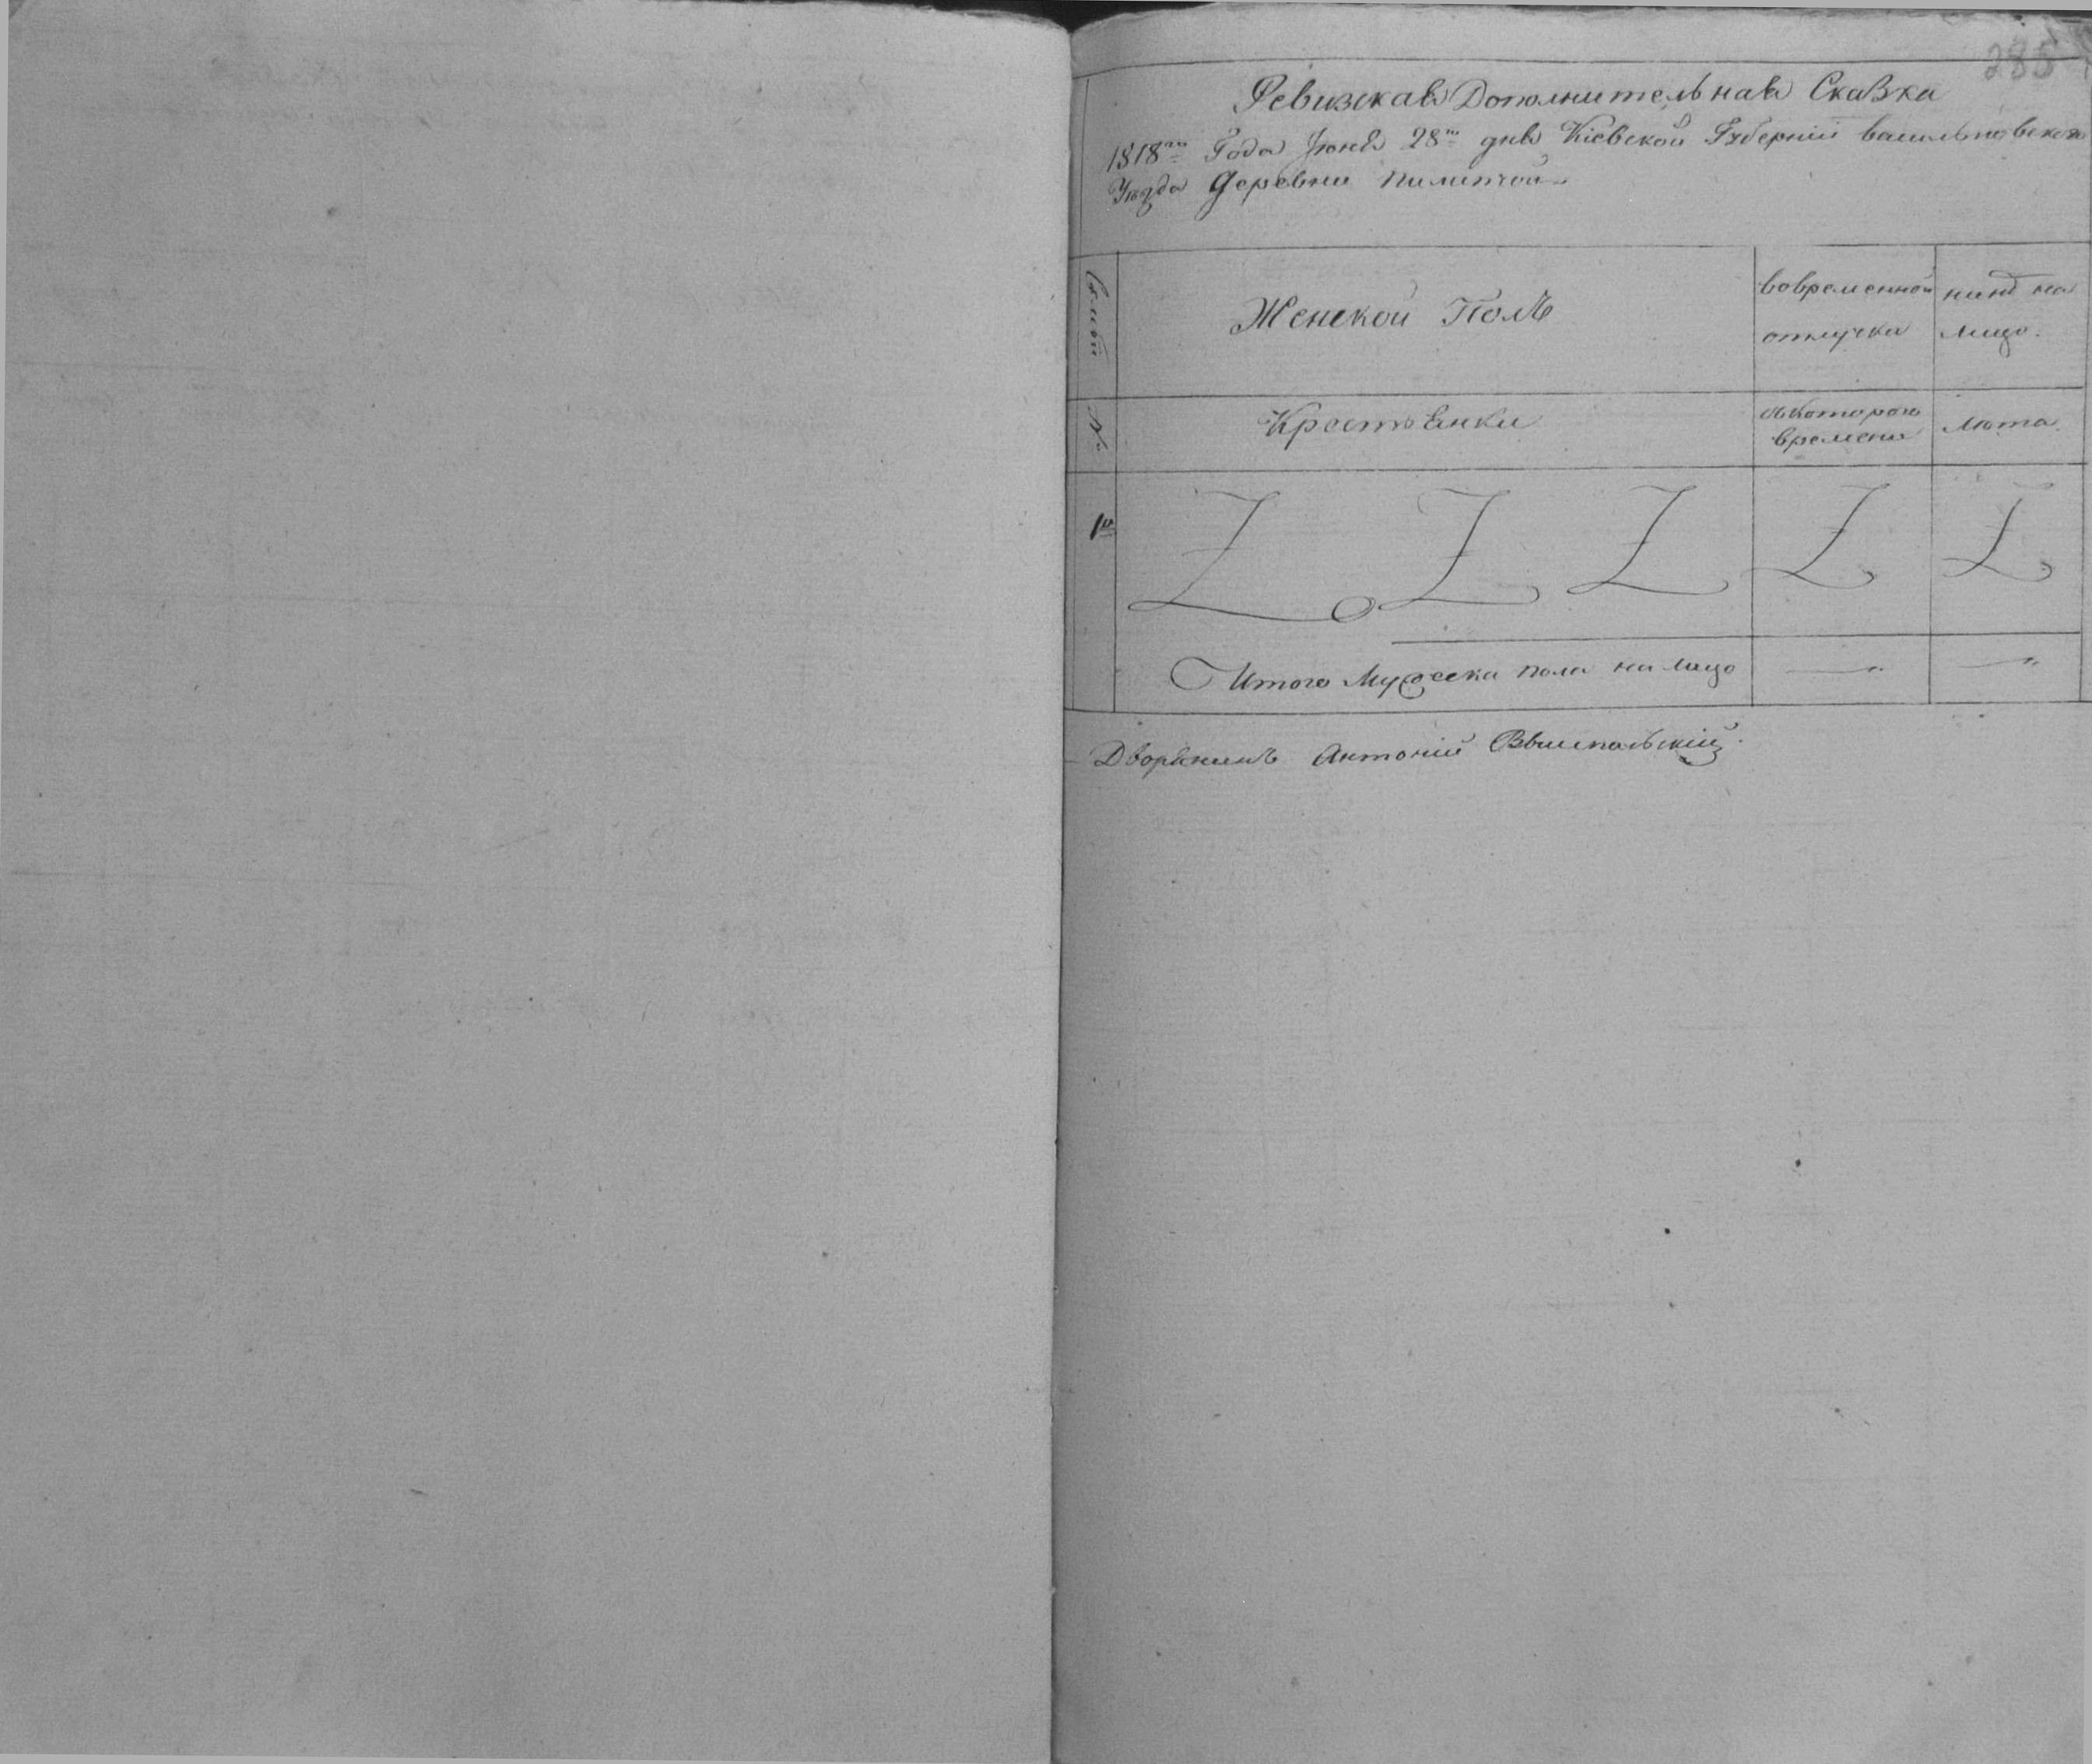 285
Ревизская Дополнительная Сказка
1818го Года Июня 28го дня Кіевской Губерніи васильковскои
Уезда Деревни Пилипчои
Семьи
Женской Полъ
вовременной отлучки
нинѣ на лицо.
№
Крестьянки
съкоторого времени
Лѣта.
1й
Z Z Z Z Z
Итого Мужеска пола на лицо — „ — „
Дворянинъ Антоній